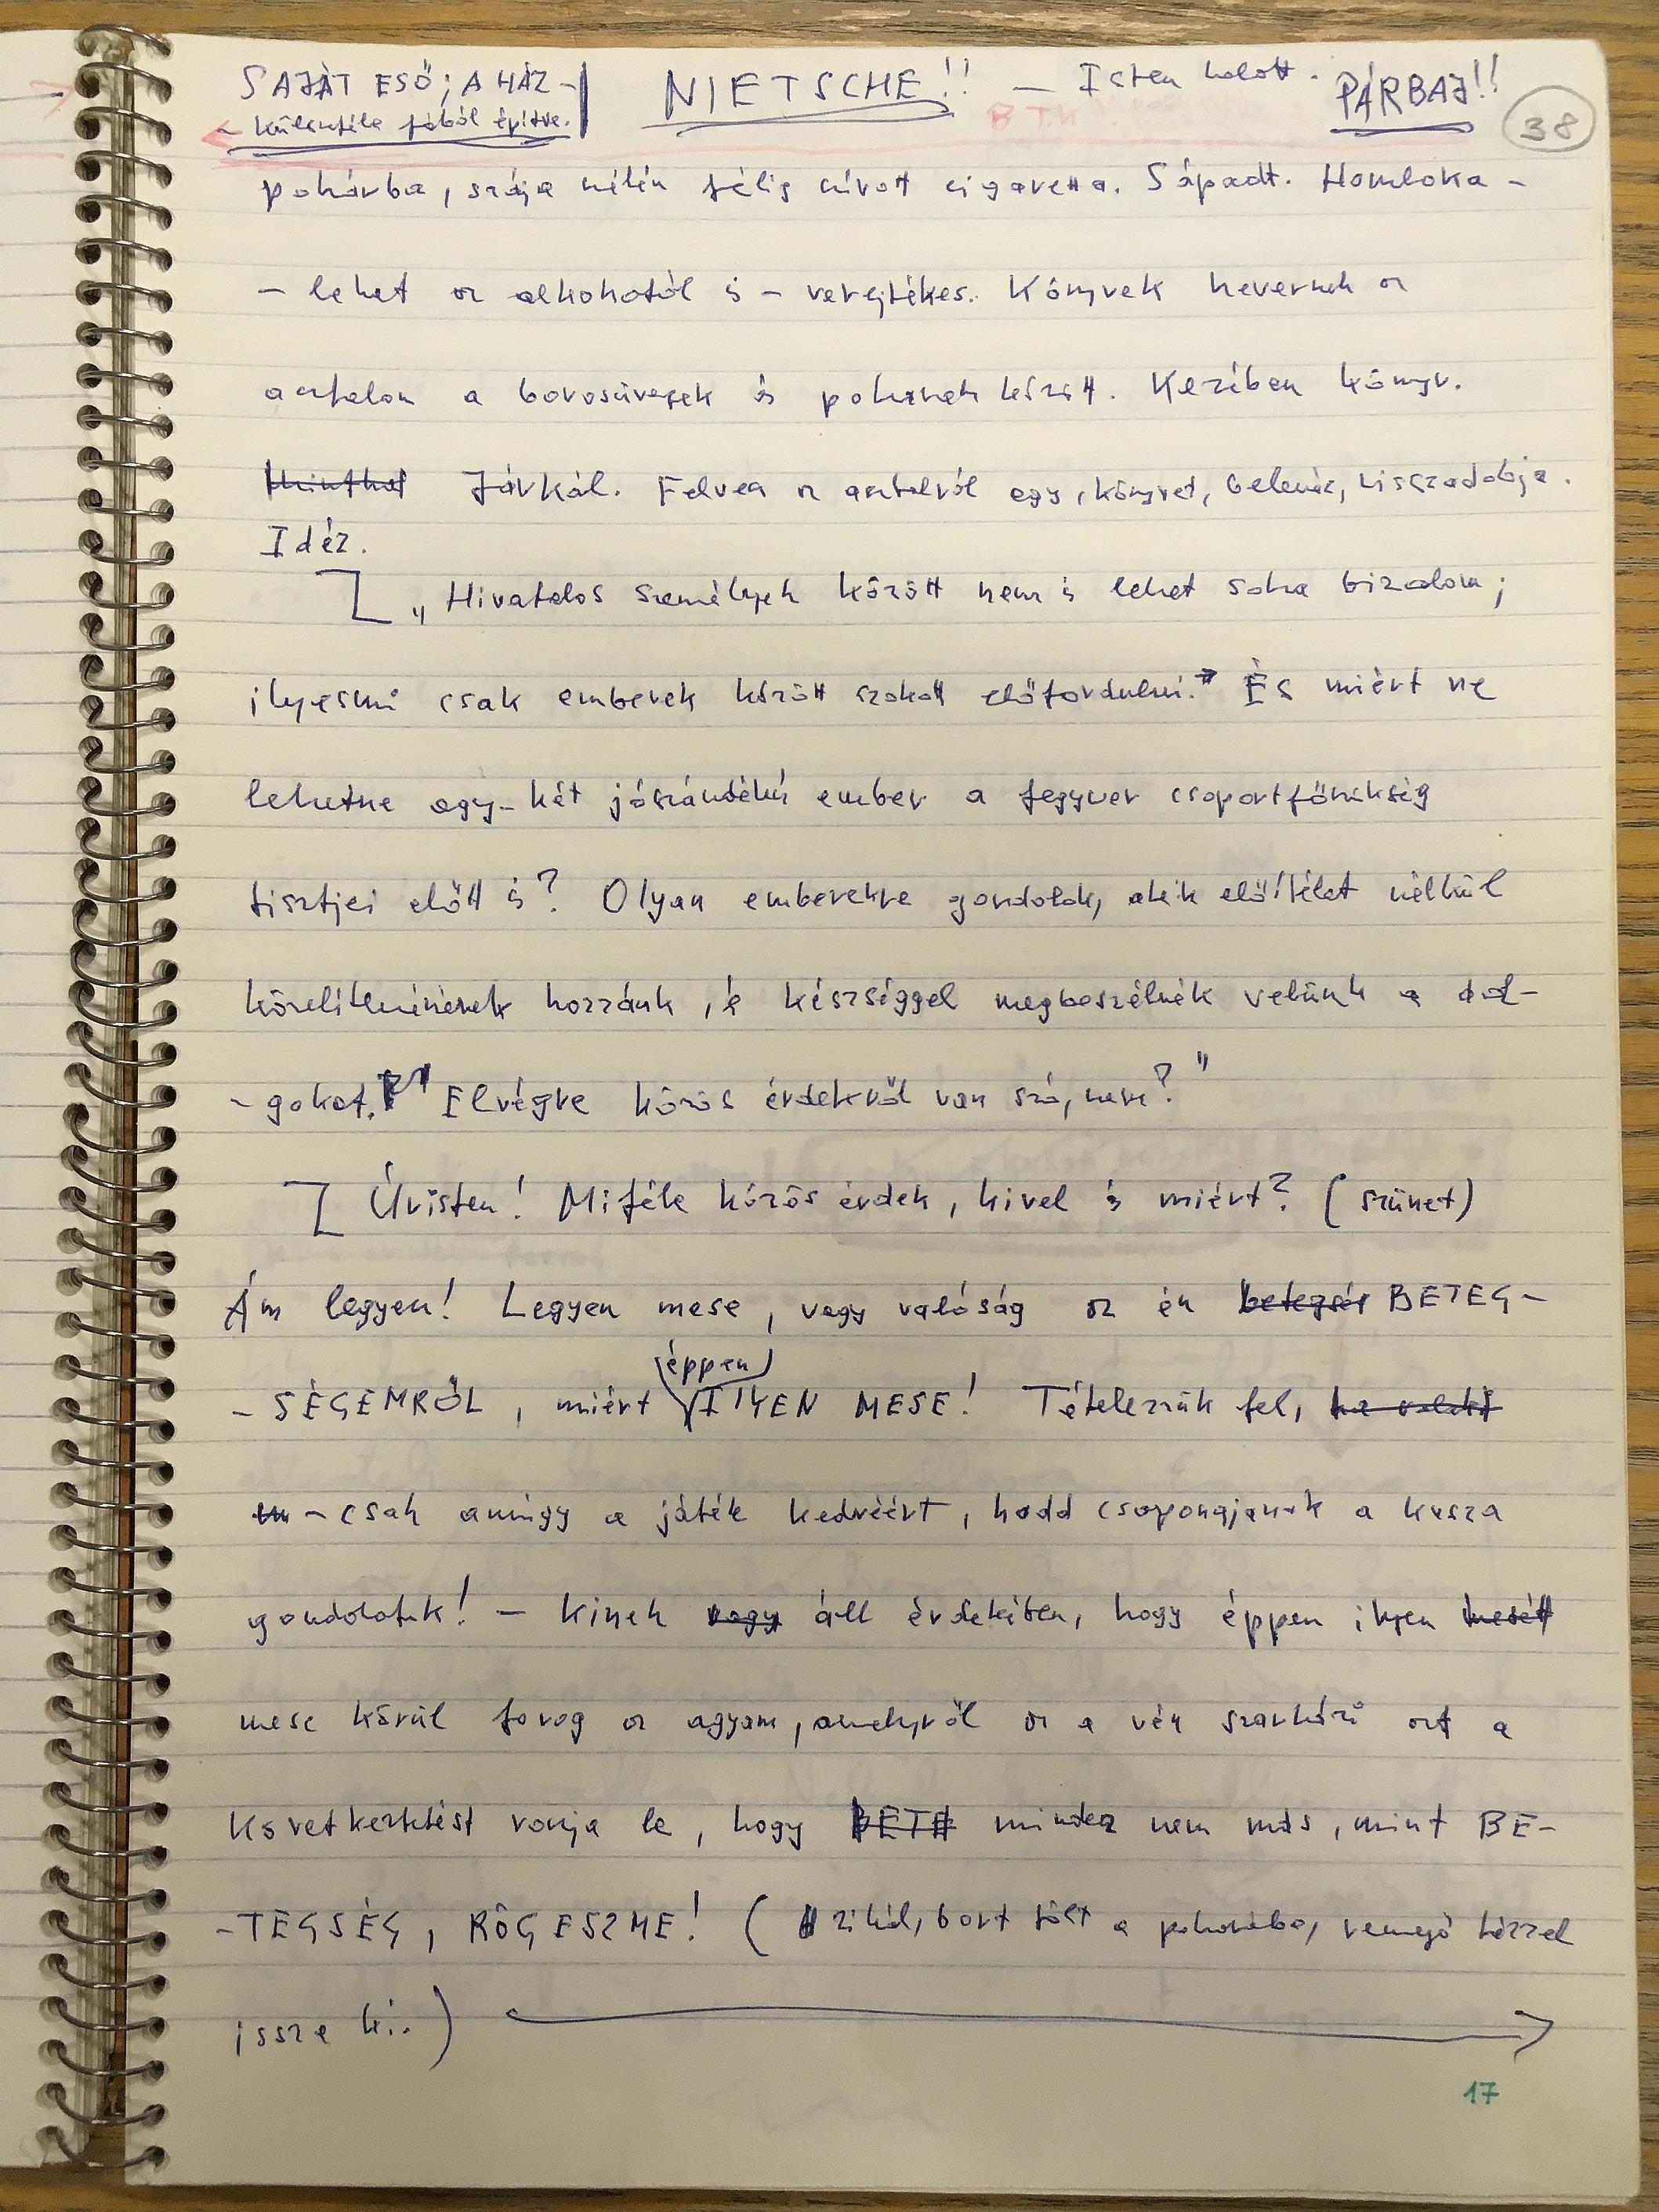 SAJÁT ESŐ; A HÁZ- NIETSCHE!! — Isten halott. PÁRBAJ!! 38
- különféle fából építve.
pohárba, szája szélén félig szívott cigaretta. Sápadt. Homloka -
- lehet az alkoholtól is - verejtékes. Könyvek hevernek az
asztalon a borosüvegek és poharak között. Kezében könyv.
Járkál. Felvesz az asztalról egy könyvet, belenéz, visszadobja.
Idéz.
„Hivatalos személyek között nem is lehet soha bizalom;
ilyesmi csak emberek között szokott előfordulni." És miért ne
lehetne egy-két jószándékú ember a fegyver csoportfőnökség
tisztjei előtt is? Olyan emberekre gondolok, akik előítélet nélkül
közelítenének hozzánk, és készséggel megbeszélnék velünk a dol-
- gokat. Elvégre közös érdekről van szó, nem?"
Úristen! Miféle közös érdek, kivel és miért? (szünet)
Ám legyen! Legyen mese, vagy valóság az én betegség BETEG-
(éppen)
- SÉGEMRŐL, miért ILYEN MESE! Tételezzük fel, ha valaki
- csak amúgy a játék kedvéért, hadd csapongjanak a kusza
gondolatok! - Kinek vagy áll érdekében, hogy éppen ilyen mesét
mese körül forog az agyam, amelyről az a vén szarházi azt a
következtetést vonja le, hogy BETE mindez nem más, mint BE-
- TEGSÉG, RÖGESZME! (bort tölt a pohárába, remegő kézzel
issza ki.)
17